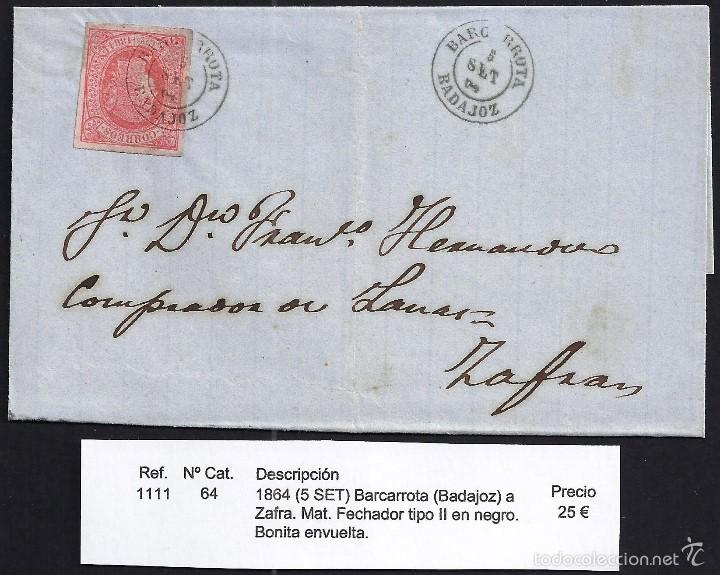 CORREOS
BARC RROTA
5
SET
BADAJOZ
BARC RROTA
5
SET
64
BADAJOZ
Sr. Dn. Franco. Hernandez
Comprador de Lanas=
Zafra
Ref. Nº Cat. Descripción Precio
1111 64 1864 (5 SET) Barcarrota (Badajoz) a 25 €
Zafra. Mat. Fechador tipo II en negro.
Bonita envuelta.
© todocoleccion.net